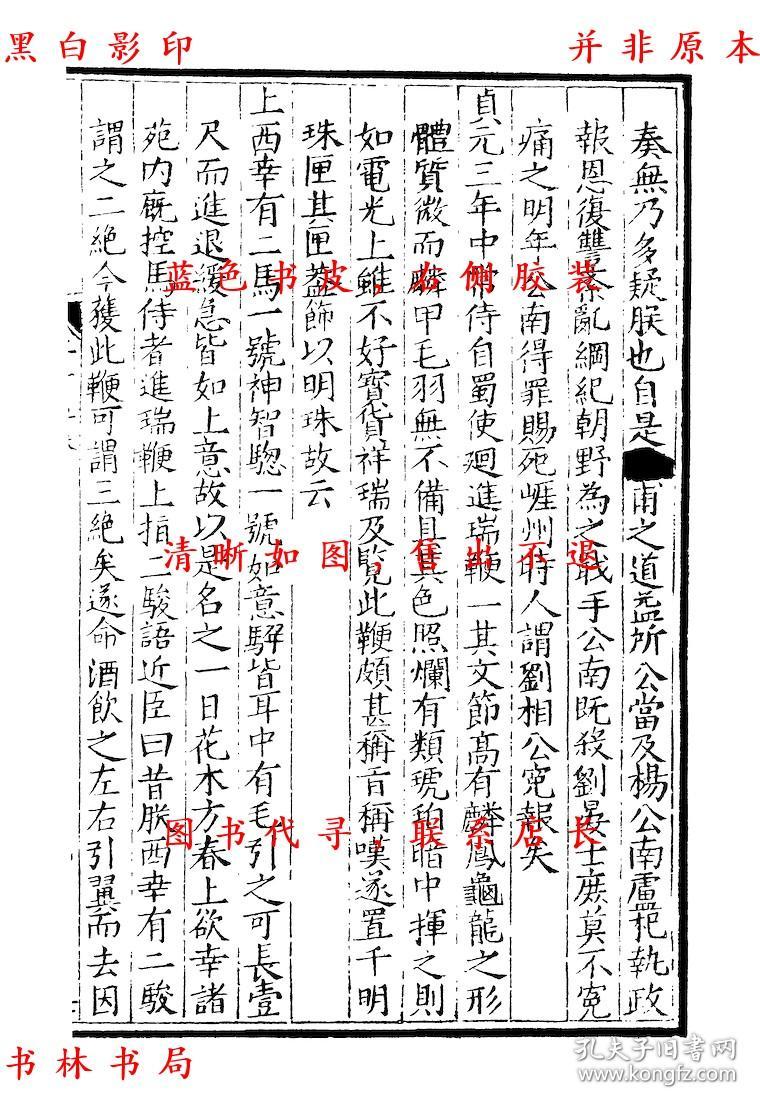 黑白影印
并非原本
奏無乃多疑朕也自是
甫之道益所公當及楊公南盧杞執政
報恩復讐紊亂綱紀朝野為之戢手公南既殺劉晏士庶莫不寃
痛之明年公南得罪賜死崕州時人謂劉相公寃報矣
貞元三年中常侍自蜀使廻進瑞鞭一其文節髙有麟鳳龜龍之形
體質微而鱗甲毛羽無不備具其色照爛有類琥珀暗中揮之則
如電光上雖不好寳貨祥瑞及覽此鞭頗甚稱旨稱嘆遂置千明
珠匣其匣盖飾以明珠故云
上西幸有二馬一號神智驄一號如意騂皆耳中有毛引之可長壹
尺而進退緩急皆如上意故以是名之一日花木方春上欲幸諸
苑内廐控馬侍者進瑞鞭上指二駿語近臣曰昔朕西幸有二駿
謂之二絶今獲此鞭可謂三絶矣遂命酒飲之左右引翼而去因
蓝色书皮，右侧胶装
清晰如图，售出不退
图书代寻，联系店长
书林书局
孔夫子旧书网
www.kongfz.com